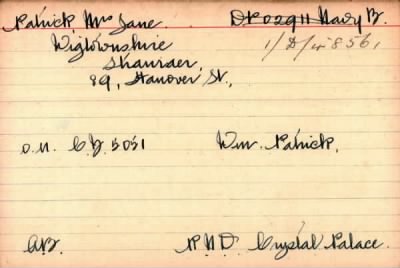 Patrick, Mrs Jane. DP 02911 Navy B.
Wigtownshire 1/D/4856,
Stranraer,
89, Hanover St.,
O.N. C.Z. 5051 Wm. Patrick.
A.B. R.N.D. Crystal Palace.